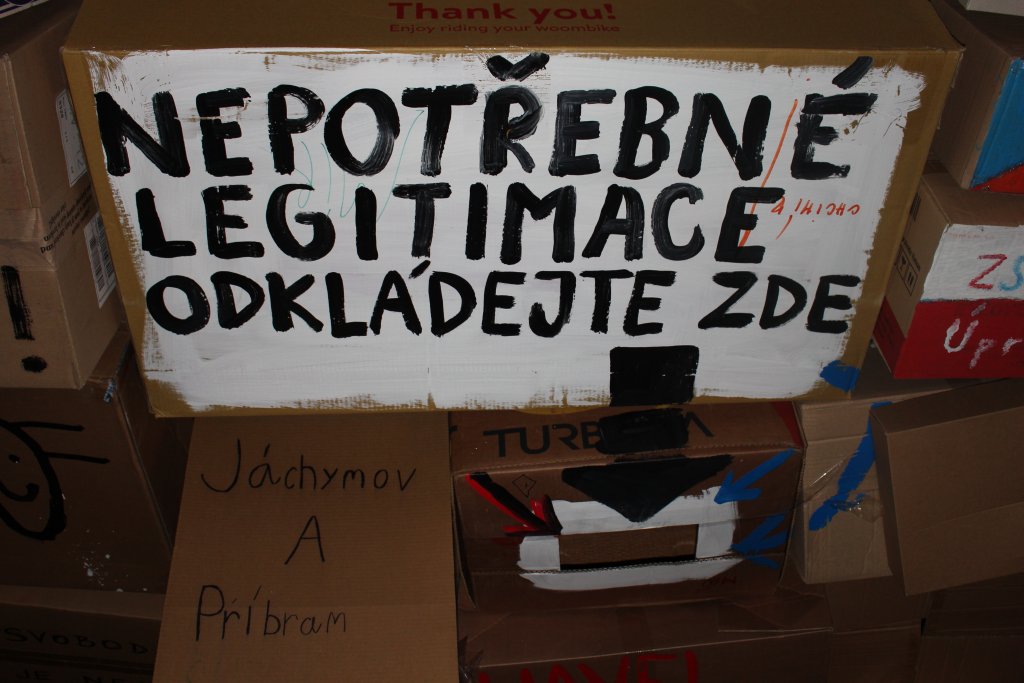 Thank you!
Enjoy riding your woombike
NEPOTŘEBNÉ
LEGITIMACE
ODKLÁDEJTE ZDE
!
Jáchymov
A
Příbram
ZS
Úpr
SVOBOD
JE
HAVEL